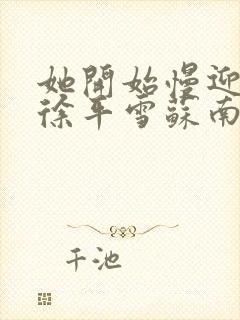 她開始慢迎
徐平雪蘇南
千池